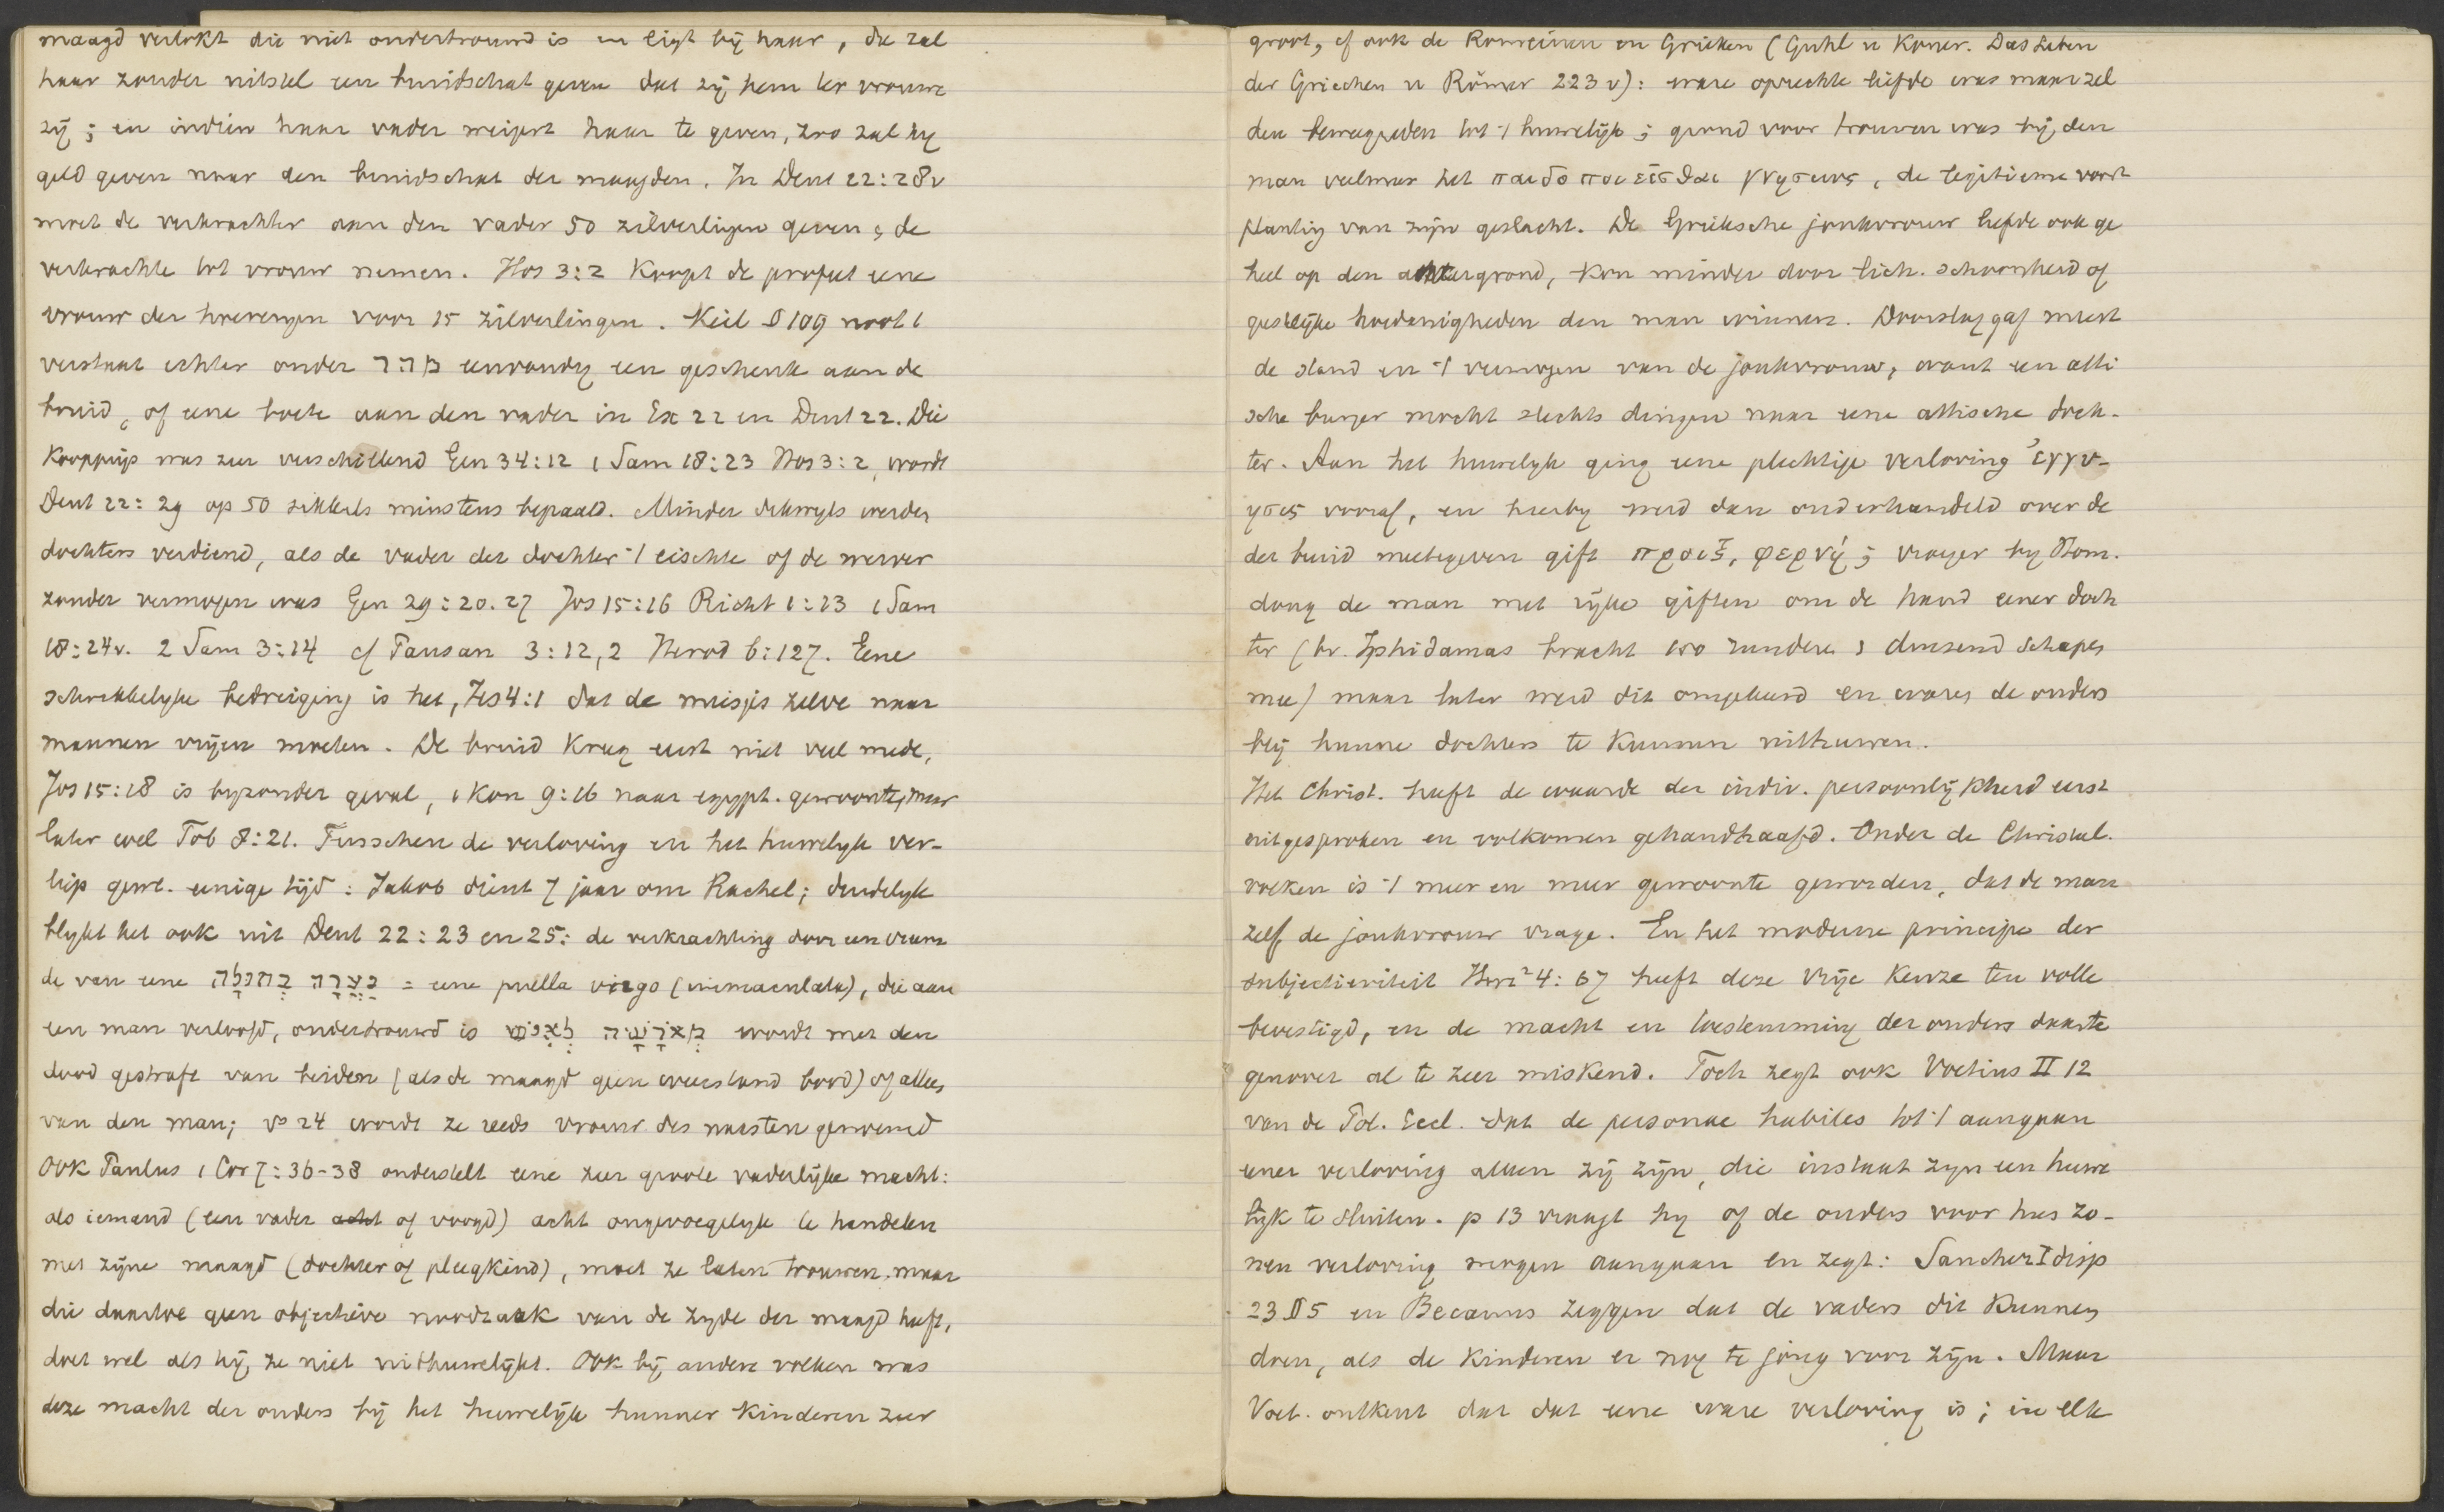 maagd verlokt die niet ondertrouwd is en ligt bij haar, die zal
haar zonder uitstel een bruidschat geven dat zij hem ter vrouwe
zij; en indien haar vader weigert haar te geven, zoo zal hij
geld geven naar den bruidschat der maagden. In Deut 22:28v
moet de verkrachter aan den vader 50 zilverlingen geven & de
verkrachte tot vrouw nemen. Hos 3:2 Koopt de profeet eene
vrouw der hoererijen voor 15 zilverlingen. Keil § 109 noot 1
verstaat echter onder מהר eenvoudig een geschenk aan de
bruid, of eene boete aan den vader in Ex 22 en Deut 22. Die
Koopprijs was zeer verschillend Gen 34:12 1 Sam 18:23 Hos 3:2, wordt
Deut 22:29 op 50 sikkels minstens bepaald. Minder dikwijls werden
dochters verdiend, als de vader der dochter 't eischte of de werver
zonder vermogen was Gen 29:20.27 Jos 15:16 Richt 1:13 1 Sam
18:24v. 2 Sam 3:14 cf Pausan 3:12,2 Herod 6:127. Eene
schrikkelijke bedreiging is het, Jes 4:1 dat de meisjes zelve naar
mannen vrijen moeten. De bruid Kreeg eerst niet veel mede,
Jos 15:18 is byzonder geval, 1 Kon 9:16 naar egypt. gewoonte, maar
later wel Tob 8:21. Tusschen de verloving en het huwelijk ver-
liep gew. eenige tijd: Jakob dient 7 jaar om Rachel; duidelijk
blijkt het ook uit Deut 22:23 en 25: de verkrachting door een vreem
de van eene נַעֲרָה בְתוּלָה = eene puella virgo (immaculata), die aan
een man verloofd, ondertrouwd is מְאֹרָשָׂה לְאִישׁ wordt met den
dood gestraft van beiden (als de maagd geen weerstand bood) of alleen
van den man; vs 24 wordt ze reeds vrouw des naasten genoemd
Ook Paulus 1 Cor 7:36-38 onderstelt eene zeer groote vaderlijke macht:
als iemand (een vader acht of voogd) acht ongevoegelijk te handelen
met zijne maagd (dochter of pleegkind), moet ze laten trouwen, maar
die daartoe geen objectieve noodzaak van de zijde der maagd heeft,
doet wel als hij ze niet uithuwelijkt. Ook bij andere volken was
deze macht der ouders bij het huwelijk hunner Kinderen zeer
groot, cf ook de Romeinen en Grieken (Guhl u Koner. Das Leben
der Griechen u Römer 223 v): ware oprechte liefde was maar zel
den beweegreden tot 't huwelijk; grond voor trouwen was bij den
man veelmeer het παιδοποιεισθαι γνησιως, de legitieme voort
planting van zijn geslacht. De Grieksche jonkvrouw leefde ook ge
heel op den achtergrond, Kon minder door lich. schoonheid of
geestelijke hoedanigheden den man winnen. Doorslag gaf meest
de stand en 't vermogen van de jonkvrouw, want een atti
sche burger mocht slechts dingen naar eene attische doch-
ter. Aan het huwelijk ging eene plechtige verloving ἐγγυ-
ησις vooraf, en hierbij werd dan onderhandeld over de
der bruid meetegeven gift προιξ, φερνή; vroeger bij Hom.
dong de man met rijke giften om de hand eener doch
ter (bv. Iphidamas bracht 100 runderen & duizend schapen
mee) maar later werd dit omgekeerd en waren de ouders
blij hunne dochters te Kunnen uithuwen.
Het Christ. heeft de waarde der indiv. persoonlijkheid eerst
uitgesproken en volkomen gehandhaafd. Onder de Christel.
volken is 't meer en meer gewoonte geworden, dat de man
zelf de jonkvrouw vrage. En het moderne principe der
subjectiviteit Herz² 4:67 heeft deze vrije Keuze ten volle
bevestigd, en de macht en toestemming der ouders daarte
genover al te zeer miskend. Toch zegt ook Voetius II 12
van de Pol. Eccl. dat de personae habiles tot 't aangaan
eener verloving alleen zij zijn, die instaat zijn een huwe
lijk te sluiten. p 13 vraagt hij of de ouders voor hun zo-
nen verloving mogen aangaan en zegt: Sanchez I disp
23 § 5 en Becanus zeggen dat de vaders dit Kunnen
doen, als de Kinderen er nog te jong voor zijn. Maar
Voet. ontkent dat dat eene ware verloving is; in elk